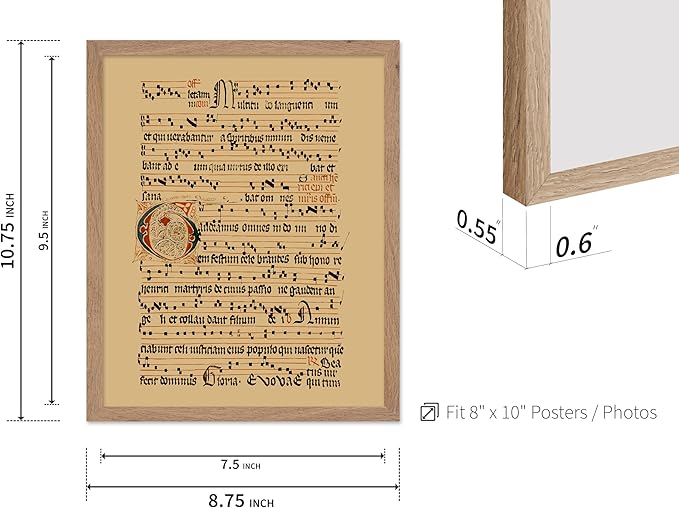 off
letani
Multitu do languenti um
et qui verabantur a spiritibus immun dis veme
bant ad e um quia virtus de illo exi bat et
sana bat om nes
adeamus omnes in do mi no di
em festum cele brantes sub hono re
henrici martyris de cuius passio ne gaudent an
ge li et collau dant filium
ciabunt celi iusticiam eius populo qui nascetur que
fecit dominus Gloria. EVOVAE
10.75 INCH
9.5 INCH
7.5 INCH
8.75 INCH
0.55"
0.6"
Fit 8" x 10" Posters / Photos